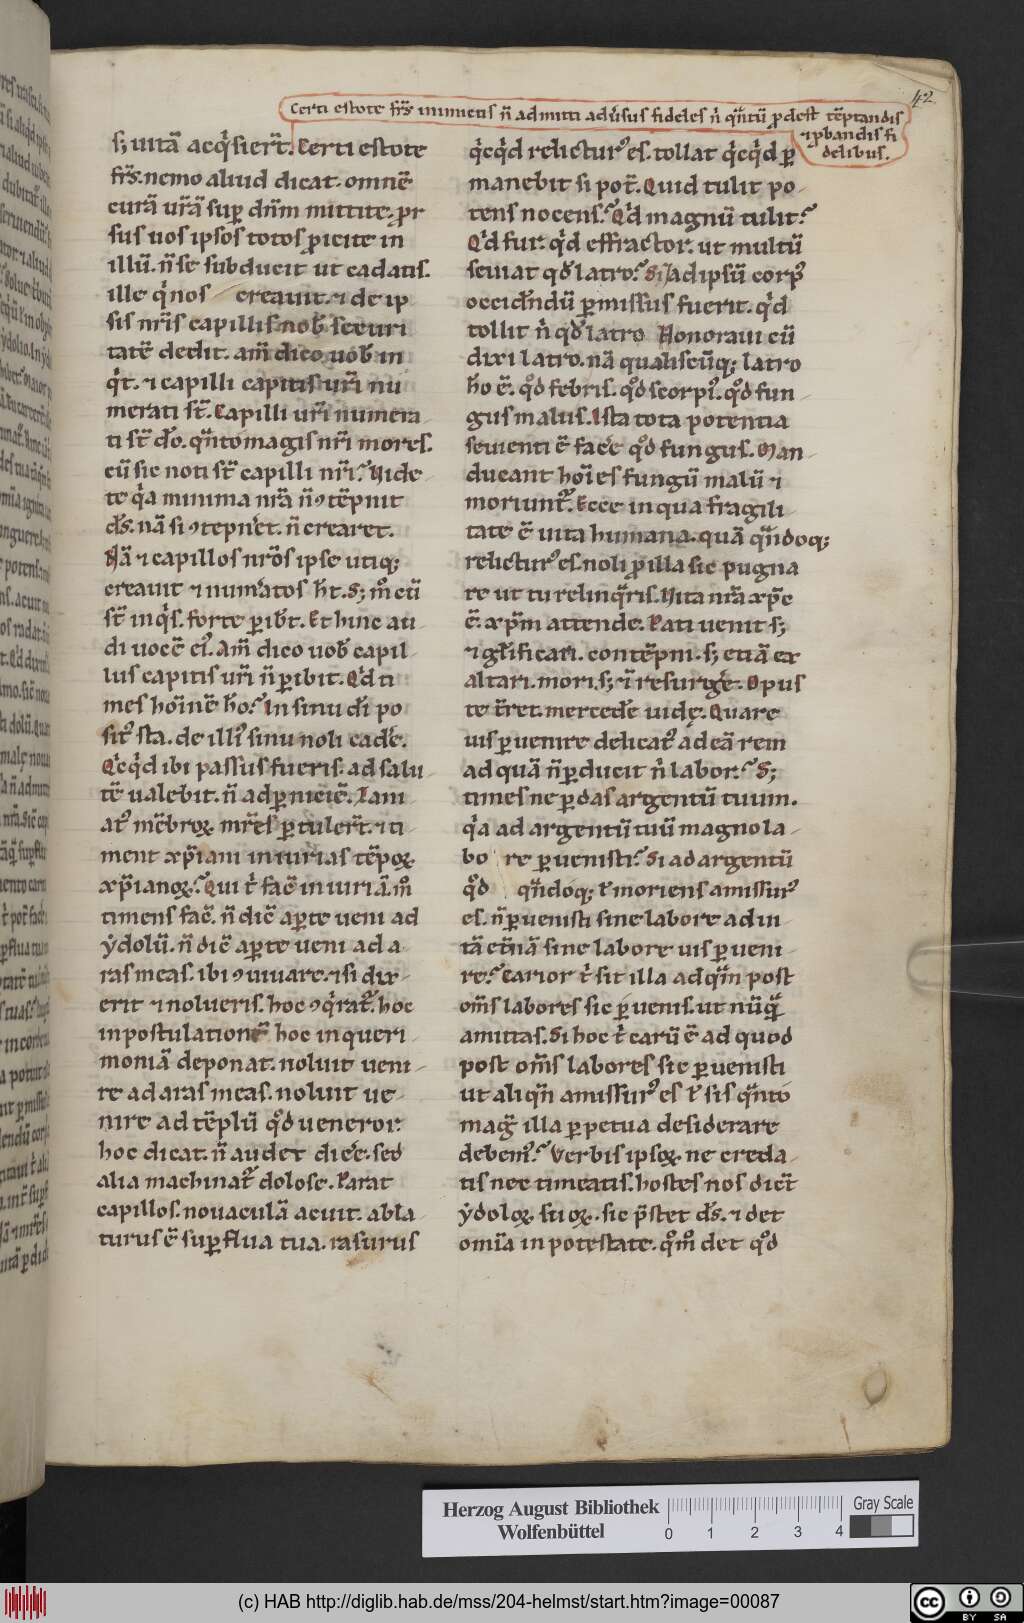 Certi estote fr̄s inimicis n̄ admitti aduˀsus fideles nͥ qͣntū ꝓdest tēptandis
⁊ ꝓbandis fi
delibus.
42
s; uitā acqͥsier̄t. Certi estote
fr̄s. nemo aliud dicat. omnē
curā ur̄ā suꝑ dn̄m mittite. ꝓr
sus uos ipsos totos ꝓicite in
illū. n̄ se subducit ut cadatis.
ille qͥ nos creauit. ⁊ de ip
sis nr̄is capillis nob̄ securi
tatē dedit. am̄ dico uob̄ in
qͥt. ⁊ capilli capitis ur̄i nu
merati st̄. Capilli ur̄i numera
ti st̄ dō. qͣnto magis nr̄i mores.
cū sic noti st̄ capilli nr̄i. Uide
te qͥa minima nr̄a n̄ ꝯtēpnit
ds̄. nā si ꝯtepn̄et. n̄ crearet.
Nā ⁊ capillos nr̄os ipse utiqꝫ
creauit ⁊ num̄atos h̄t. S; mͦ cū
st̄ in qͥs. forte ꝑib̄t. Et hinc au
di uocē eiꝰ. Am̄ dico uob̄ capil
lus capitis ur̄i n̄ ꝑibit. Qͥd ti
mes hoīnē h̄o. In sinu dī po
sitꝰ sta. de illiꝰ sinu noli cad̄e.
Qͥcqͥd ibi passus fueris. ad salu
tē ualebit. n̄ ad ꝑniciē. Iani
atꝰ mēbroꝝ mr̄es ꝑtuler̄t. ⁊ ti
ment xp̄iani iniurias tēpoꝝ
xp̄ianoꝝ. Qui tͥ fac̄ iniuriā. mͦ
timens fac̄. n̄ dic̄ aꝑte ueni ad
ẏdolū. n̄ dic̄ aꝑte ueni ad a
ras meas. ibi ꝯuiuare. ⁊ si dix
erit ⁊ nolueris. hoc ꝯqͥrat᷑. hoc
in postulationē hoc in queri
moniā deponat. noluit ueni
re ad aras meas. noluit ue
nire ad tēplū qͦd ueneror.
hoc dicat. n̄ audet dic̄e. sed
alia machinat᷑ dolose. Parat
capillos. nouaculā acuit. abla
turus ē suꝑflua tua. rasurus
qͥcqͥd relicturꝰ es. tollat qͥcqͥd ꝑ
manebit si pot̄. Quid tulit po
tens nocens. Qͥd magnū tulit.
Qͥd fur. qͥd effractor. ut multū
seuiat qͥd latro. Si ad ipsū corpꝰ
occid̄ndū ꝑmissus fuerit. qͥd
tollit nͥ qͦd latro Honoraui cū
dixi latro. nā qualiscūqꝫ latro
h̄o ē. qͦd febris. qͦd scorpiꝰ. qͦd fun
gus malus. Ista tota potentia
seuienti ē fac̄e qͦd fungus. Man
ducant hoīes fungū malū ⁊
moriunt᷑. Ecce in qua fragili
tate ē uita humana. quā qͣn̄doqꝫ
relicturꝰ es. noli ꝓ illa sic pugna
re ut tu relinqͣris. Uita nr̄a xp̄c
ē. xp̄m attende. Pati uenit s;
⁊ gl̄ificari. contēpni. s; etiā ex
altari. mori. s; ⁊ resurge. Opus
te t̄ret. mercede uidę. Quare
uis ꝑuenire delicatꝰ ad eā rem
ad quā n̄ ꝑducit nͥ labor. S;
times ne ꝑdas argentū tuum.
qͥa ad argentū tuū magno la
bo re ꝑuenisti. Si ad argentū
qͦd qͣn̄doqꝫ ł moriens amissurꝰ
es. n̄ ꝑuenisti sine labore ad ui
tā et̄nā sine labore uis ꝑueni
re. Carior tͥ sit illa ad qͣm̄ post
om̄s labores sic ꝑuenis. ut nūqͣ
amittas. Si hoc tͥ carū ē ad quod
post om̄s labores sic ꝑuenisti
ut aliqn̄ amissurꝰ es ł sis qͣnto
maḡ illa ꝑpetua desiderare
debemꝰ. Verbis ipsoꝝ ne creda
tis nec timeatis. hostes nos dic̄t
ẏdoloꝝ suoꝝ. sic p̄stet ds̄. ⁊ det
omīa in potestate. qͦmͦ det qͦd
Herzog August Bibliothek
Wolfenbüttel
0 1 2 3 4
Gray Scale
(c) HAB http://diglib.hab.de/mss/204-helmst/start.htm?image=00087
cc BY SA